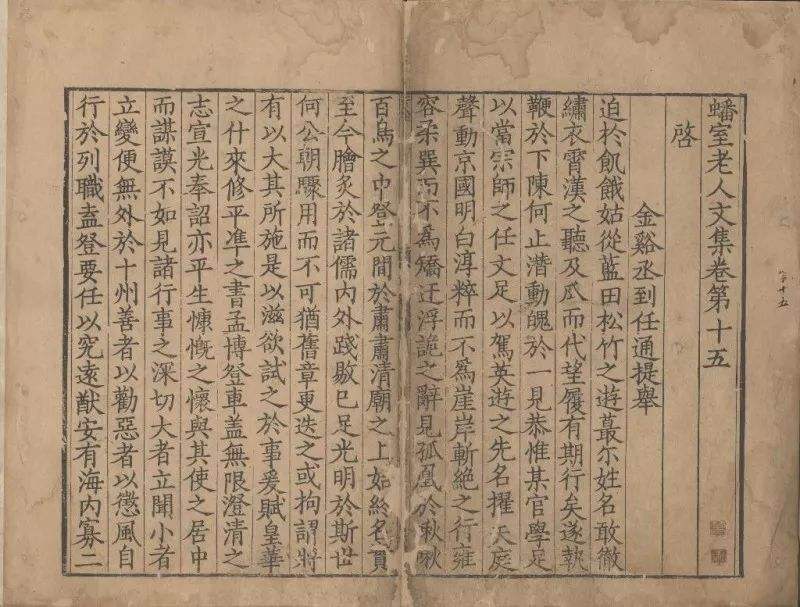 蟠室老人文集卷第十五
啓
金谿丞到任通提舉
迫於飢餓姑從藍田松竹之遊蕞尒姓名敢徹
繡衣霄漢之聽及瓜而代望履有期行矣遂執
鞭於下陳何止潛動魄於一見恭惟某官學足
以當宗師之任文足以駕英遊之先名擢天庭
聲動京國明白淳粹而不爲崖岸斬絶之行雍
容柔巽而不爲矯迂浮詭之辭見孤凰於秋啾
百鳥之中登元間於肅肅清廟之上如終名貫
至今膾炙於諸儒内外踐敭已足光明於斯世
何公朝驟用而不可猶舊章更迭之或拘謂將
有以大其所施是以滋欲試之於事爰賦皇華
之什來修平凖之書孟博登車盖無限澄清之
志宣光奉詔亦平生慷慨之懷與其使之居中
而謀謨不如見諸行事之深切大者立聞小者
立變便無外於十州善者以勸惡者以懲風自
行於列職盍登要任以究遠猷安有海内寡二